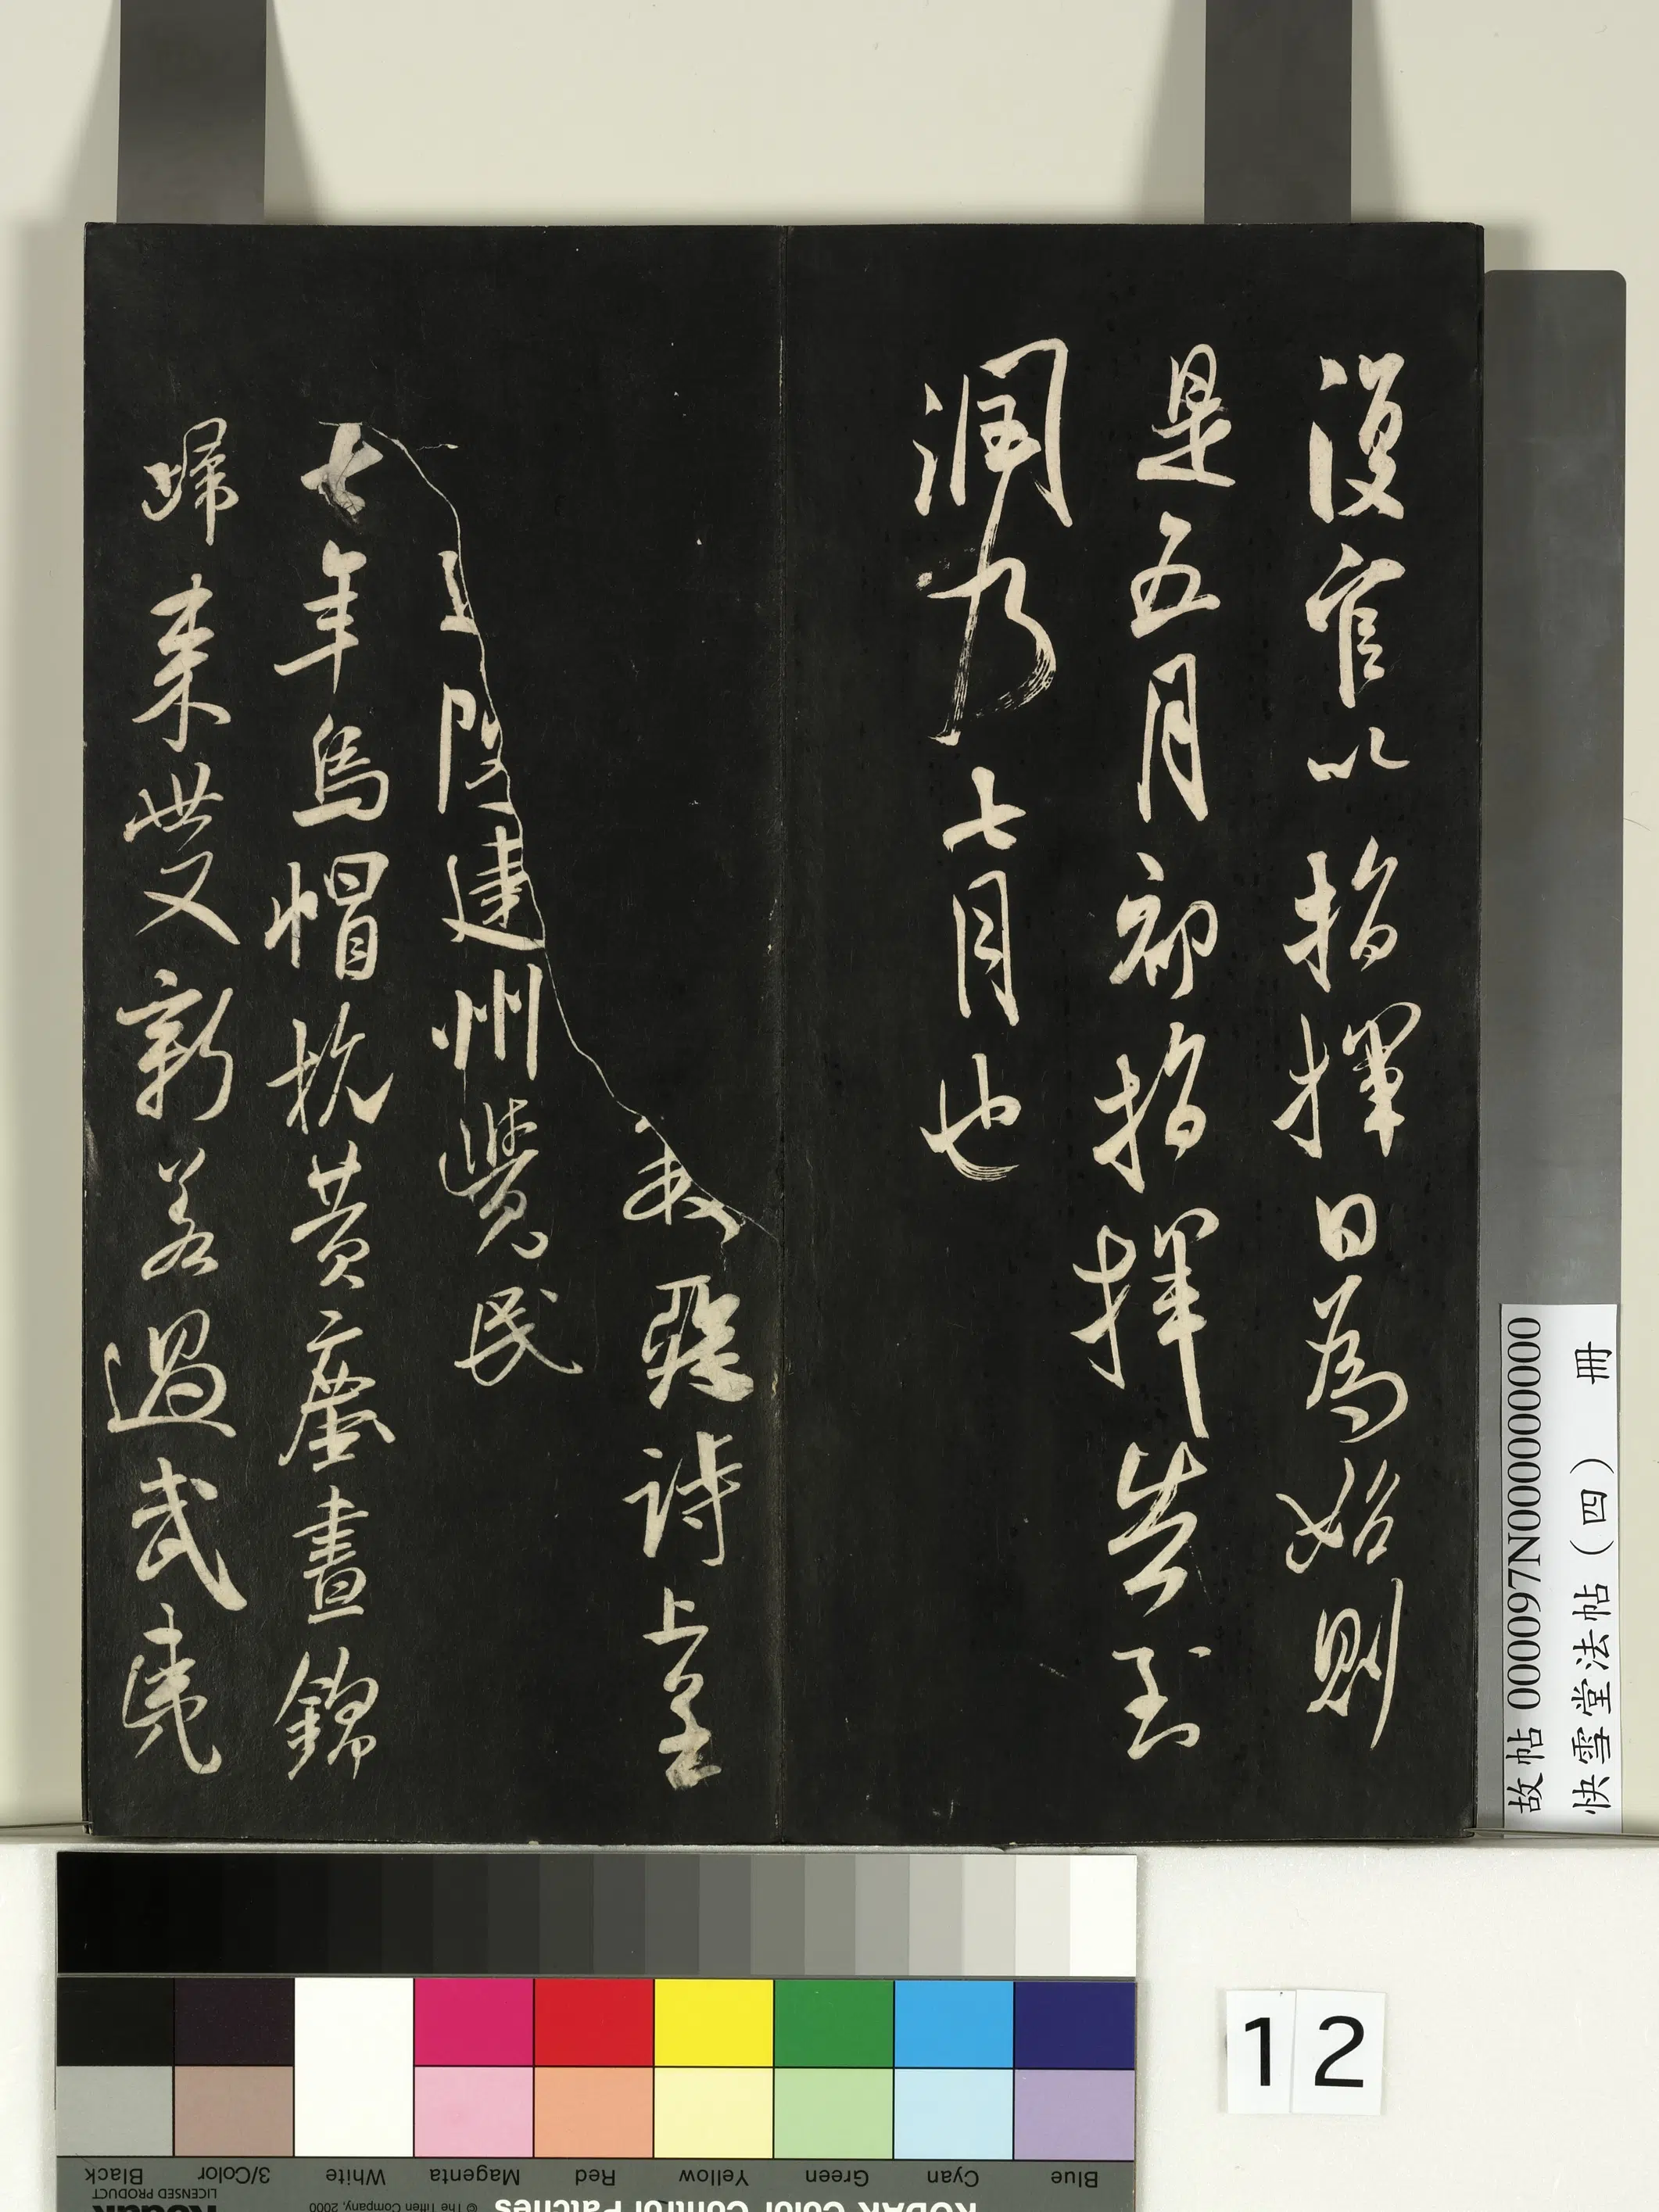 復官以指揮日為始則
是五月初指揮告到
潤乃七月也
惡詩上呈
建州覺民
七年烏帽抗黃塵晝錦
歸來世又新羞過武夷
故帖 000097N000000000
快雪堂法帖(四) 冊
12
Blue Cyan Green Yellow Red Magenta White 3/Color Black
KODAK Color Control Patches
© The Tiffen Company, 2000
Kodak
LICENSED PRODUCT